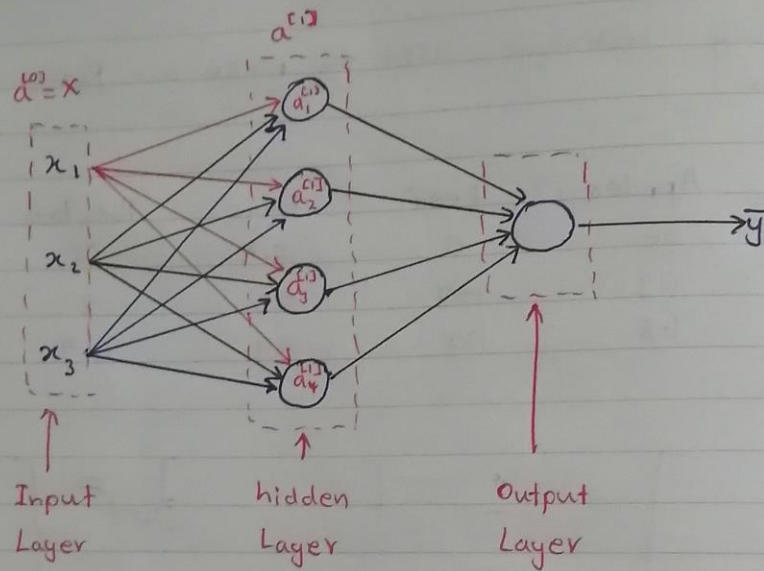 a^[1]
a^[0] = x
x₁
x₂
x₃
a₁^[1]
a₂^[1]
a₃^[1]
a₄^[1]
y̅
Input
Layer
hidden
Layer
Output
Layer